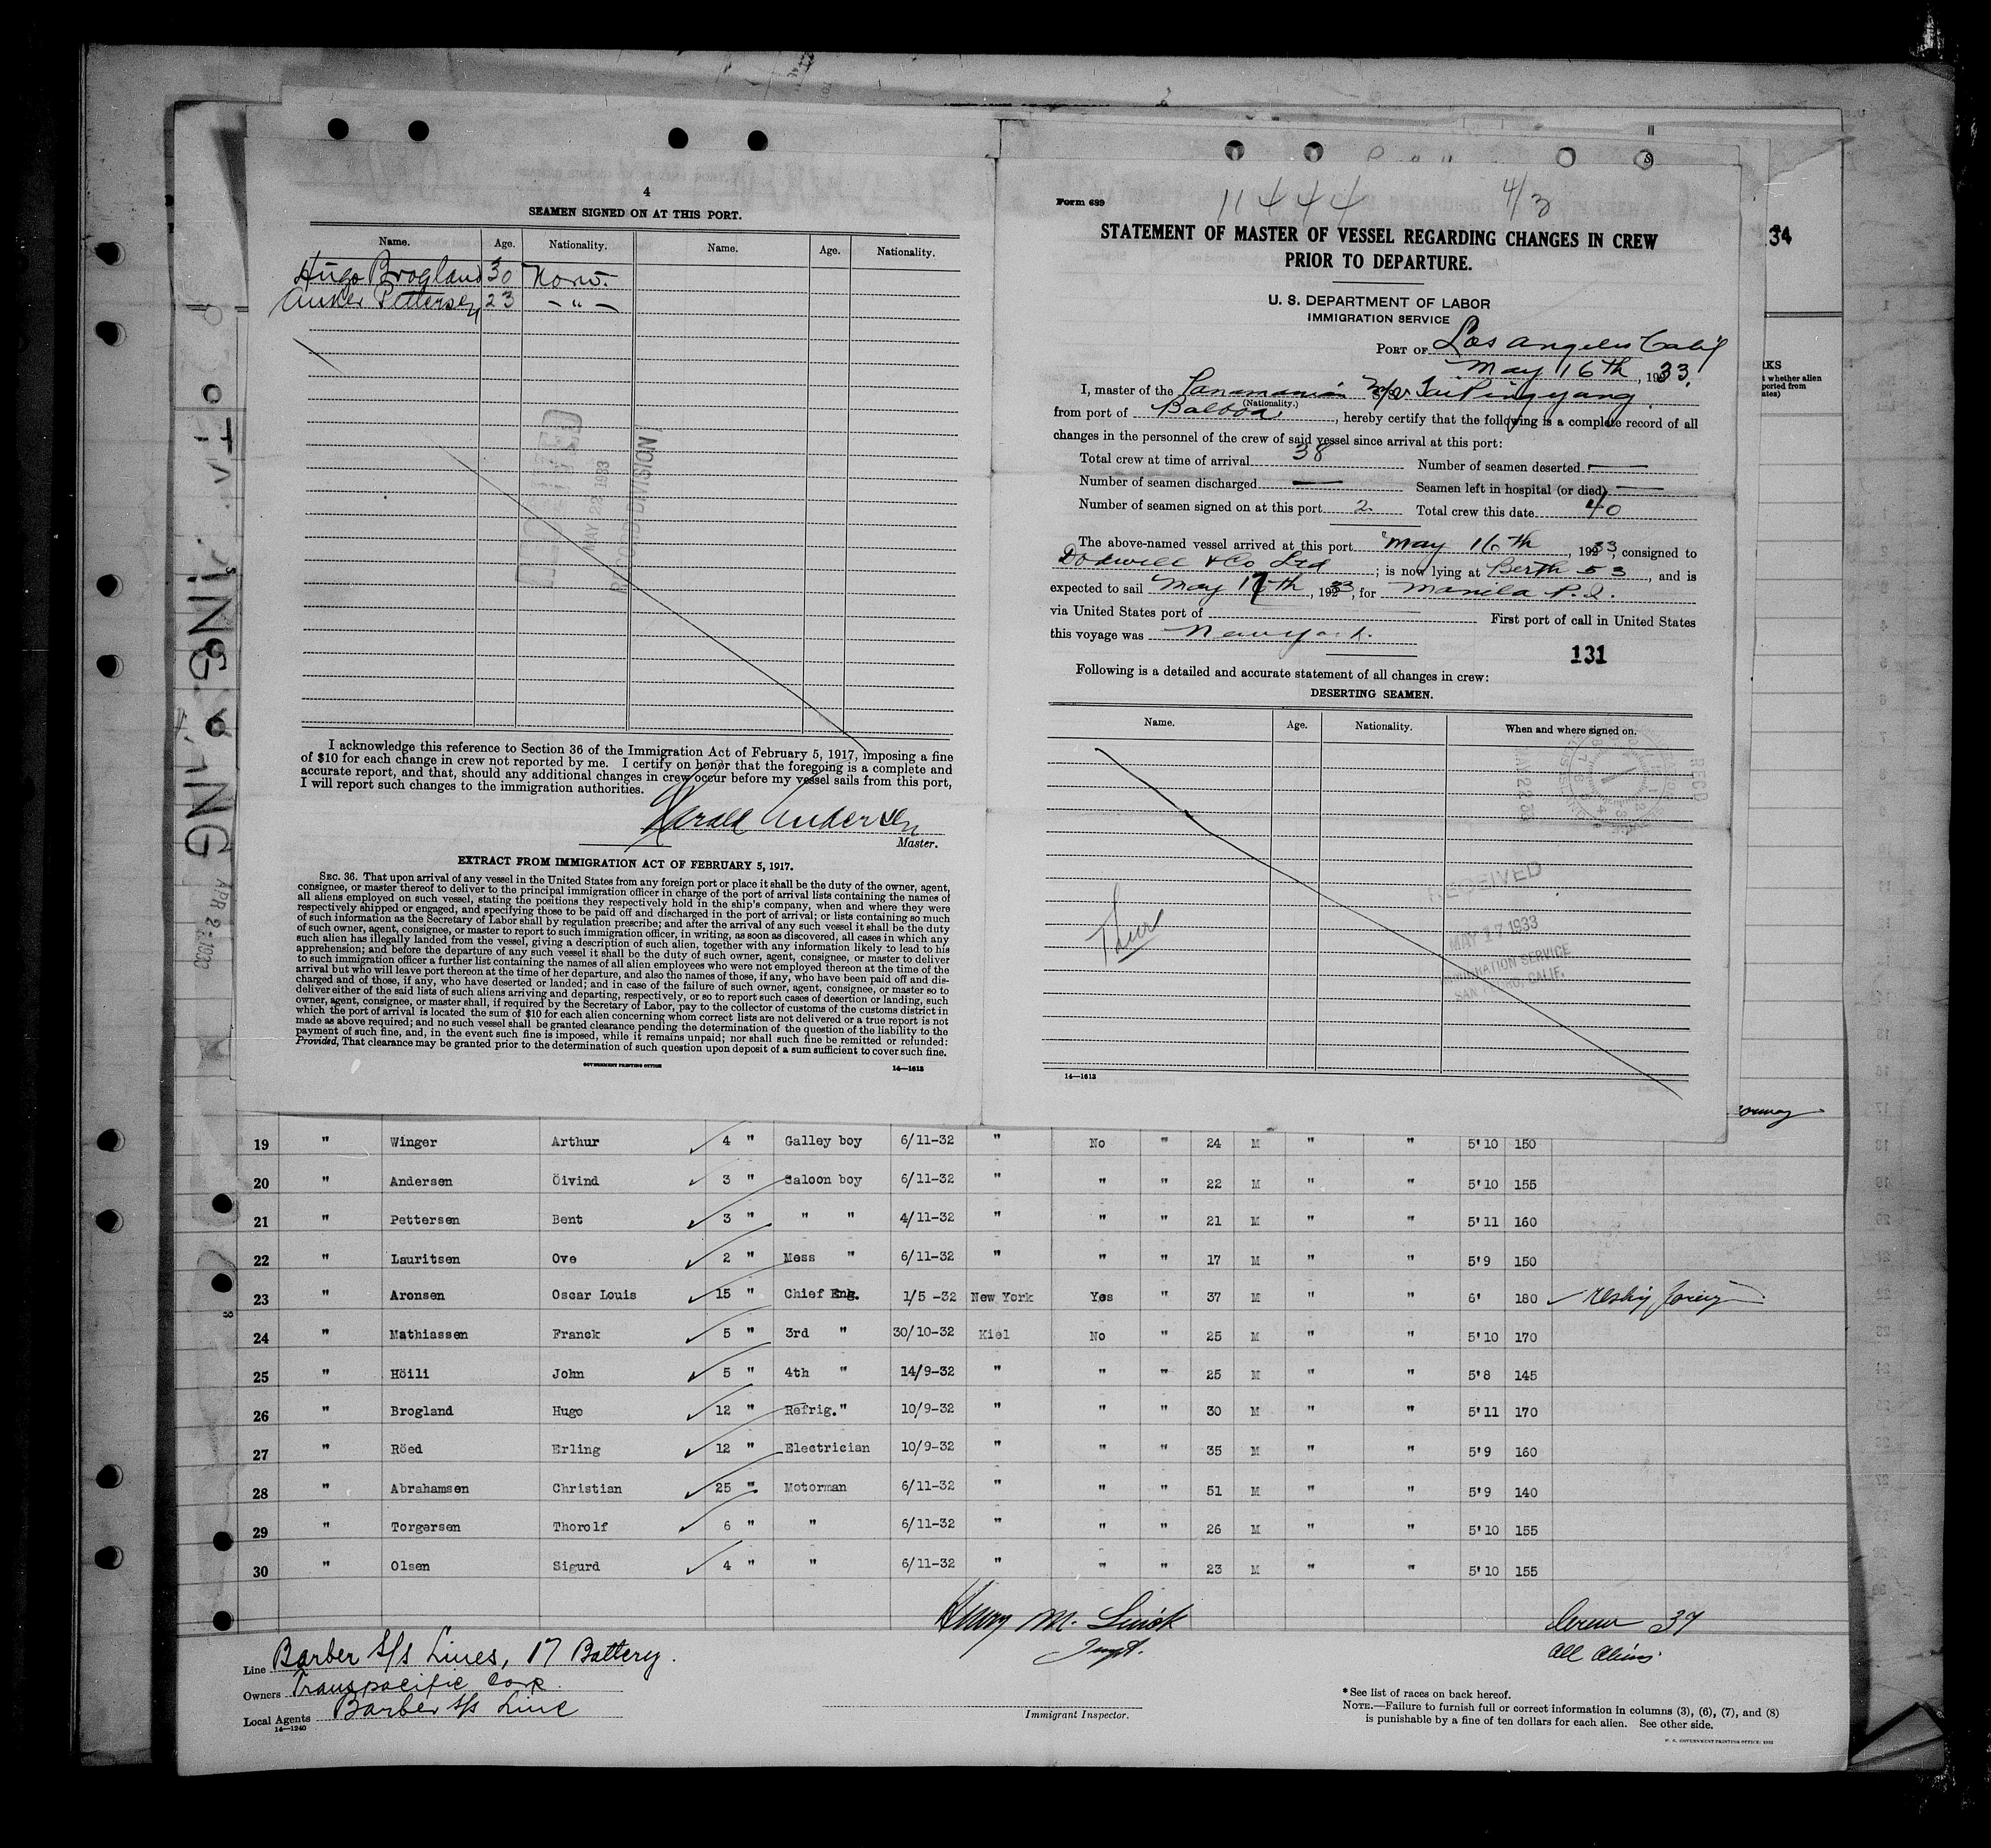 4
SEAMEN SIGNED ON AT THIS PORT.
Name. Age. Nationality. Name. Age. Nationality.
Hugo Brogland 30 Norw.
Anker Pettersen 23 -"-
MAY 22 1933
RECORD DIVISION
I acknowledge this reference to Section 36 of the Immigration Act of February 5, 1917, imposing a fine
of $10 for each change in crew not reported by me. I certify on honor that the foregoing is a complete and
accurate report, and that, should any additional changes in crew occur before my vessel sails from this port,
I will report such changes to the immigration authorities.
Harald Andersen
Master.
EXTRACT FROM IMMIGRATION ACT OF FEBRUARY 5, 1917.
SEC. 36. That upon arrival of any vessel in the United States from any foreign port or place it shall be the duty of the owner, agent,
consignee, or master thereof to deliver to the principal immigration officer in charge of the port of arrival lists containing the names of
all aliens employed on such vessel, stating the positions they respectively hold in the ship's company, when and where they were
respectively shipped or engaged, and specifying those to be paid off and discharged in the port of arrival; or lists containing so much
of such information as the Secretary of Labor shall by regulation prescribe; and after the arrival of any such vessel it shall be the duty
of such owner, agent, consignee, or master to report to such immigration officer, in writing, as soon as discovered, all cases in which any
such alien has illegally landed from the vessel, giving a description of such alien, together with any information likely to lead to his
apprehension; and before the departure of any such vessel it shall be the duty of such owner, agent, consignee, or master to deliver
to such immigration officer a further list containing the names of all alien employees who were not employed thereon at the time of the
arrival but who will leave port thereon at the time of her departure, and also the names of those, if any, who have been paid off and dis-
charged and of those, if any, who have deserted or landed; and in case of the failure of such owner, agent, consignee, or master so to
deliver either of the said lists of such aliens arriving and departing, respectively, or so to report such cases of desertion or landing, such
owner, agent, consignee, or master shall, if required by the Secretary of Labor, pay to the collector of customs of the customs district in
which the port of arrival is located the sum of $10 for each alien concerning whom correct lists are not delivered or a true report is not
made as above required; and no such vessel shall be granted clearance pending the determination of the question of the liability to the
payment of such fine, and, in the event such fine is imposed, while it remains unpaid; nor shall such fine be remitted or refunded:
Provided, That clearance may be granted prior to the determination of such question upon deposit of a sum sufficient to cover such fine.
GOVERNMENT PRINTING OFFICE 14—1613
Form 689
11444 4/3
STATEMENT OF MASTER OF VESSEL REGARDING CHANGES IN CREW
PRIOR TO DEPARTURE.
U. S. DEPARTMENT OF LABOR
IMMIGRATION SERVICE
PORT OF Los Angeles Calif
May 16th, 1933.
I, master of the Panamanian M/v Tai Ping Yang
(Nationality.)
from port of Balboa, hereby certify that the following is a complete record of all
changes in the personnel of the crew of said vessel since arrival at this port:
Total crew at time of arrival 38 Number of seamen deserted —
Number of seamen discharged — Seamen left in hospital (or died) —
Number of seamen signed on at this port 2 Total crew this date 40
The above-named vessel arrived at this port May 16th, 1933, consigned to
Dodwell & Co Ltd; is now lying at Berth 53, and is
expected to sail May 17th, 1933, for Manila P.I.
via United States port of First port of call in United States
this voyage was New York.
131
Following is a detailed and accurate statement of all changes in crew:
DESERTING SEAMEN.
Name. Age. Nationality. When and where signed on.
REC'D
MAY 22 33
RECEIVED
MAY 17 1933
IMMIGRATION SERVICE
SAN PEDRO, CALIF.
14—1613
34
RKS
whether alien
ported from
ates)
YANG
APR 2 1933
19 " Winger Arthur 4 " Galley boy 6/11-32 " No " 24 M " " 5'10 150
20 " Andersen Öivind 3 " Saloon boy 6/11-32 " " " 22 M " " 5'10 155
21 " Pettersen Bent 3 " " " 4/11-32 " " " 21 M " " 5'11 160
22 " Lauritsen Ove 2 " Mess " 6/11-32 " " " 17 M " " 5'9 150
23 " Aronsen Oscar Louis 15 " Chief Eng. 1/5 -32 New York Yes " 37 M " " 6' 180
24 " Mathiassen Franck 5 " 3rd " 30/10-32 Kiel No " 25 M " " 5'10 170
25 " Höili John 5 " 4th " 14/9-32 " " " 25 M " " 5'8 145
26 " Brogland Hugo 12 " Refrig." 10/9-32 " " " 30 M " " 5'11 170
27 " Röed Erling 12 " Electrician 10/9-32 " " " 35 M " " 5'9 160
28 " Abrahamsen Christian 25 " Motorman 6/11-32 " " " 51 M " " 5'9 140
29 " Torgersen Thorolf 6 " " 6/11-32 " " " 26 M " " 5'10 155
30 " Olsen Sigurd 4 " " 6/11-32 " " " 23 M " " 5'10 155
Crew 37
All Aliens
Line Barber S/s Lines, 17 Battery.
Owners Transpacific Corp.
Local Agents Barber S/s Line
14—1240
Immigrant Inspector.
*See list of races on back hereof.
NOTE.—Failure to furnish full or correct information in columns (3), (6), (7), and (8)
is punishable by a fine of ten dollars for each alien. See other side.
U. S. GOVERNMENT PRINTING OFFICE: 1932